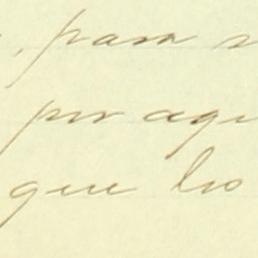 , para
por aqu
que los